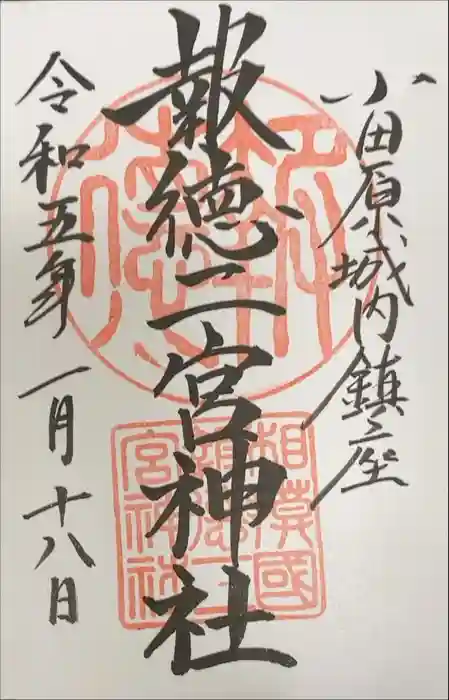 小田原城内鎮座
報徳二宮神社
令和五年一月十八日
報徳
相模國
報徳二
宮神社